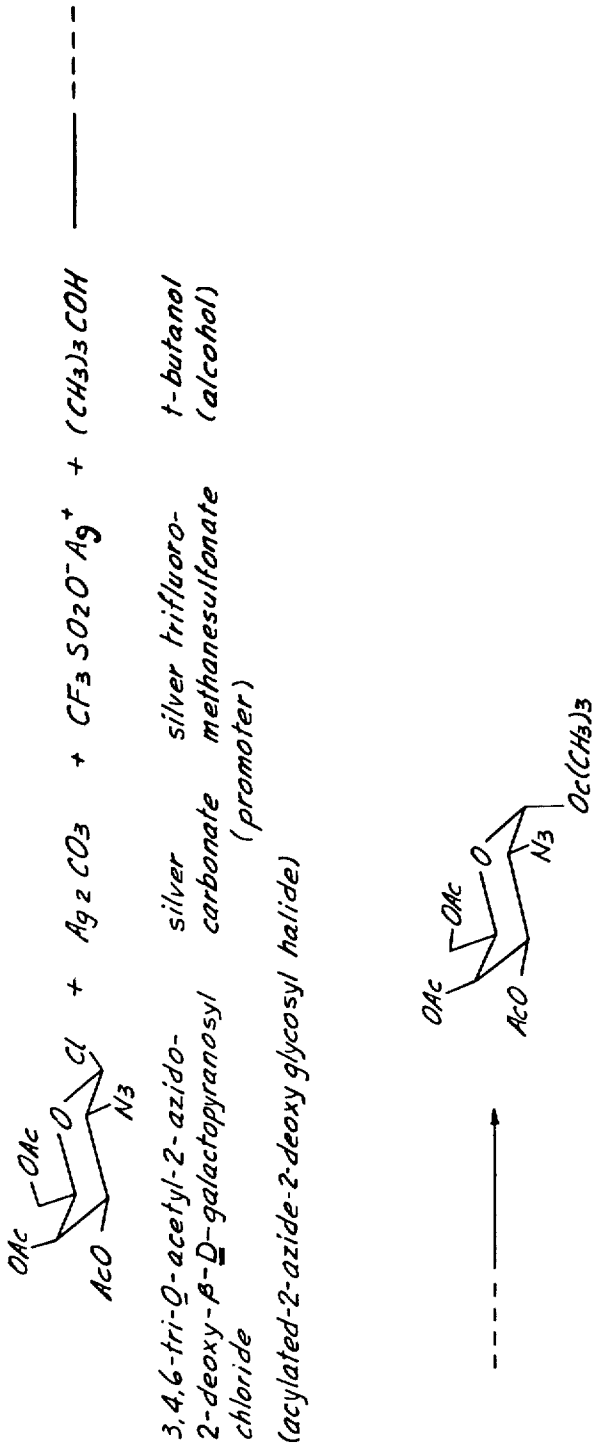 OAc
OAc
O
Cl + Ag2CO3 + CF3SO2O-Ag+ + (CH3)3COH
AcO
N3
3,4,6-tri-O-acetyl-2-azido-
2-deoxy-β-D-galactopyranosyl
chloride
(acylated-2-azide-2-deoxy glycosyl halide)
silver
carbonate
silver trifluoro-
methanesulfonate
(promoter)
t-butanol
(alcohol)
OAc
OAc
O
AcO
N3
Oc(CH3)3